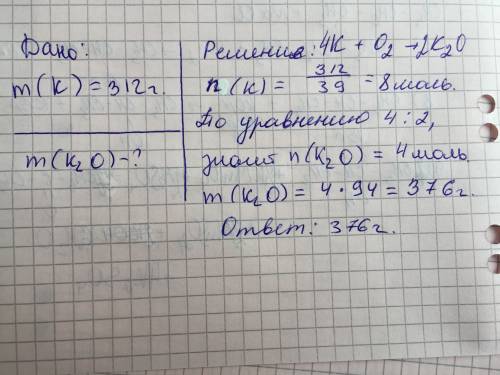 Дано:
m(K) = 312г.
m(K₂O) - ?
Решение: 4K + O₂ → 2K₂O
n(K) = 312/39 = 8 моль.
По уравнению 4:2,
значит n(K₂O) = 4 моль
m(K₂O) = 4 · 94 = 376г.
Ответ: 376г.